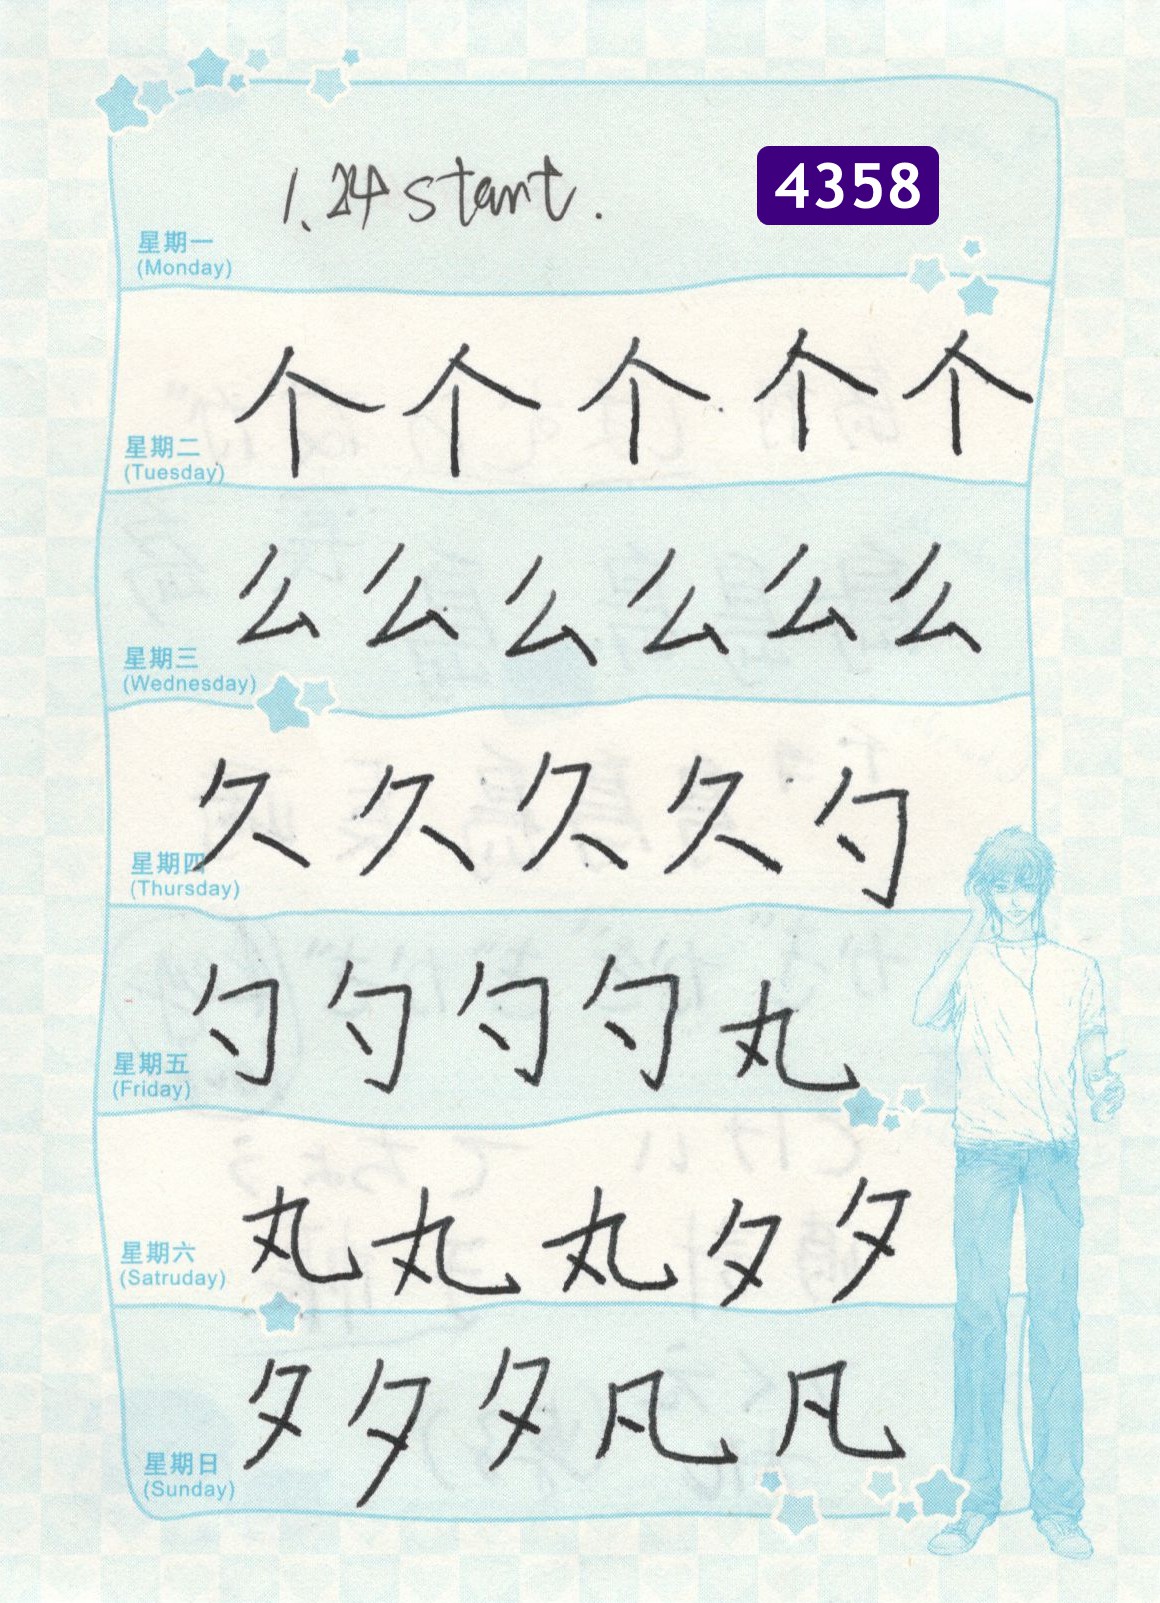 1.24 start.
4358
星期一
(Monday)
个个个个个
星期二
(Tuesday)
么么么么么么
星期三
(Wednesday)
久久久久勺
星期四
(Thursday)
勺勺勺勺丸
星期五
(Friday)
丸丸丸夕夕
星期六
(Satruday)
夕夕夕凡凡
星期日
(Sunday)